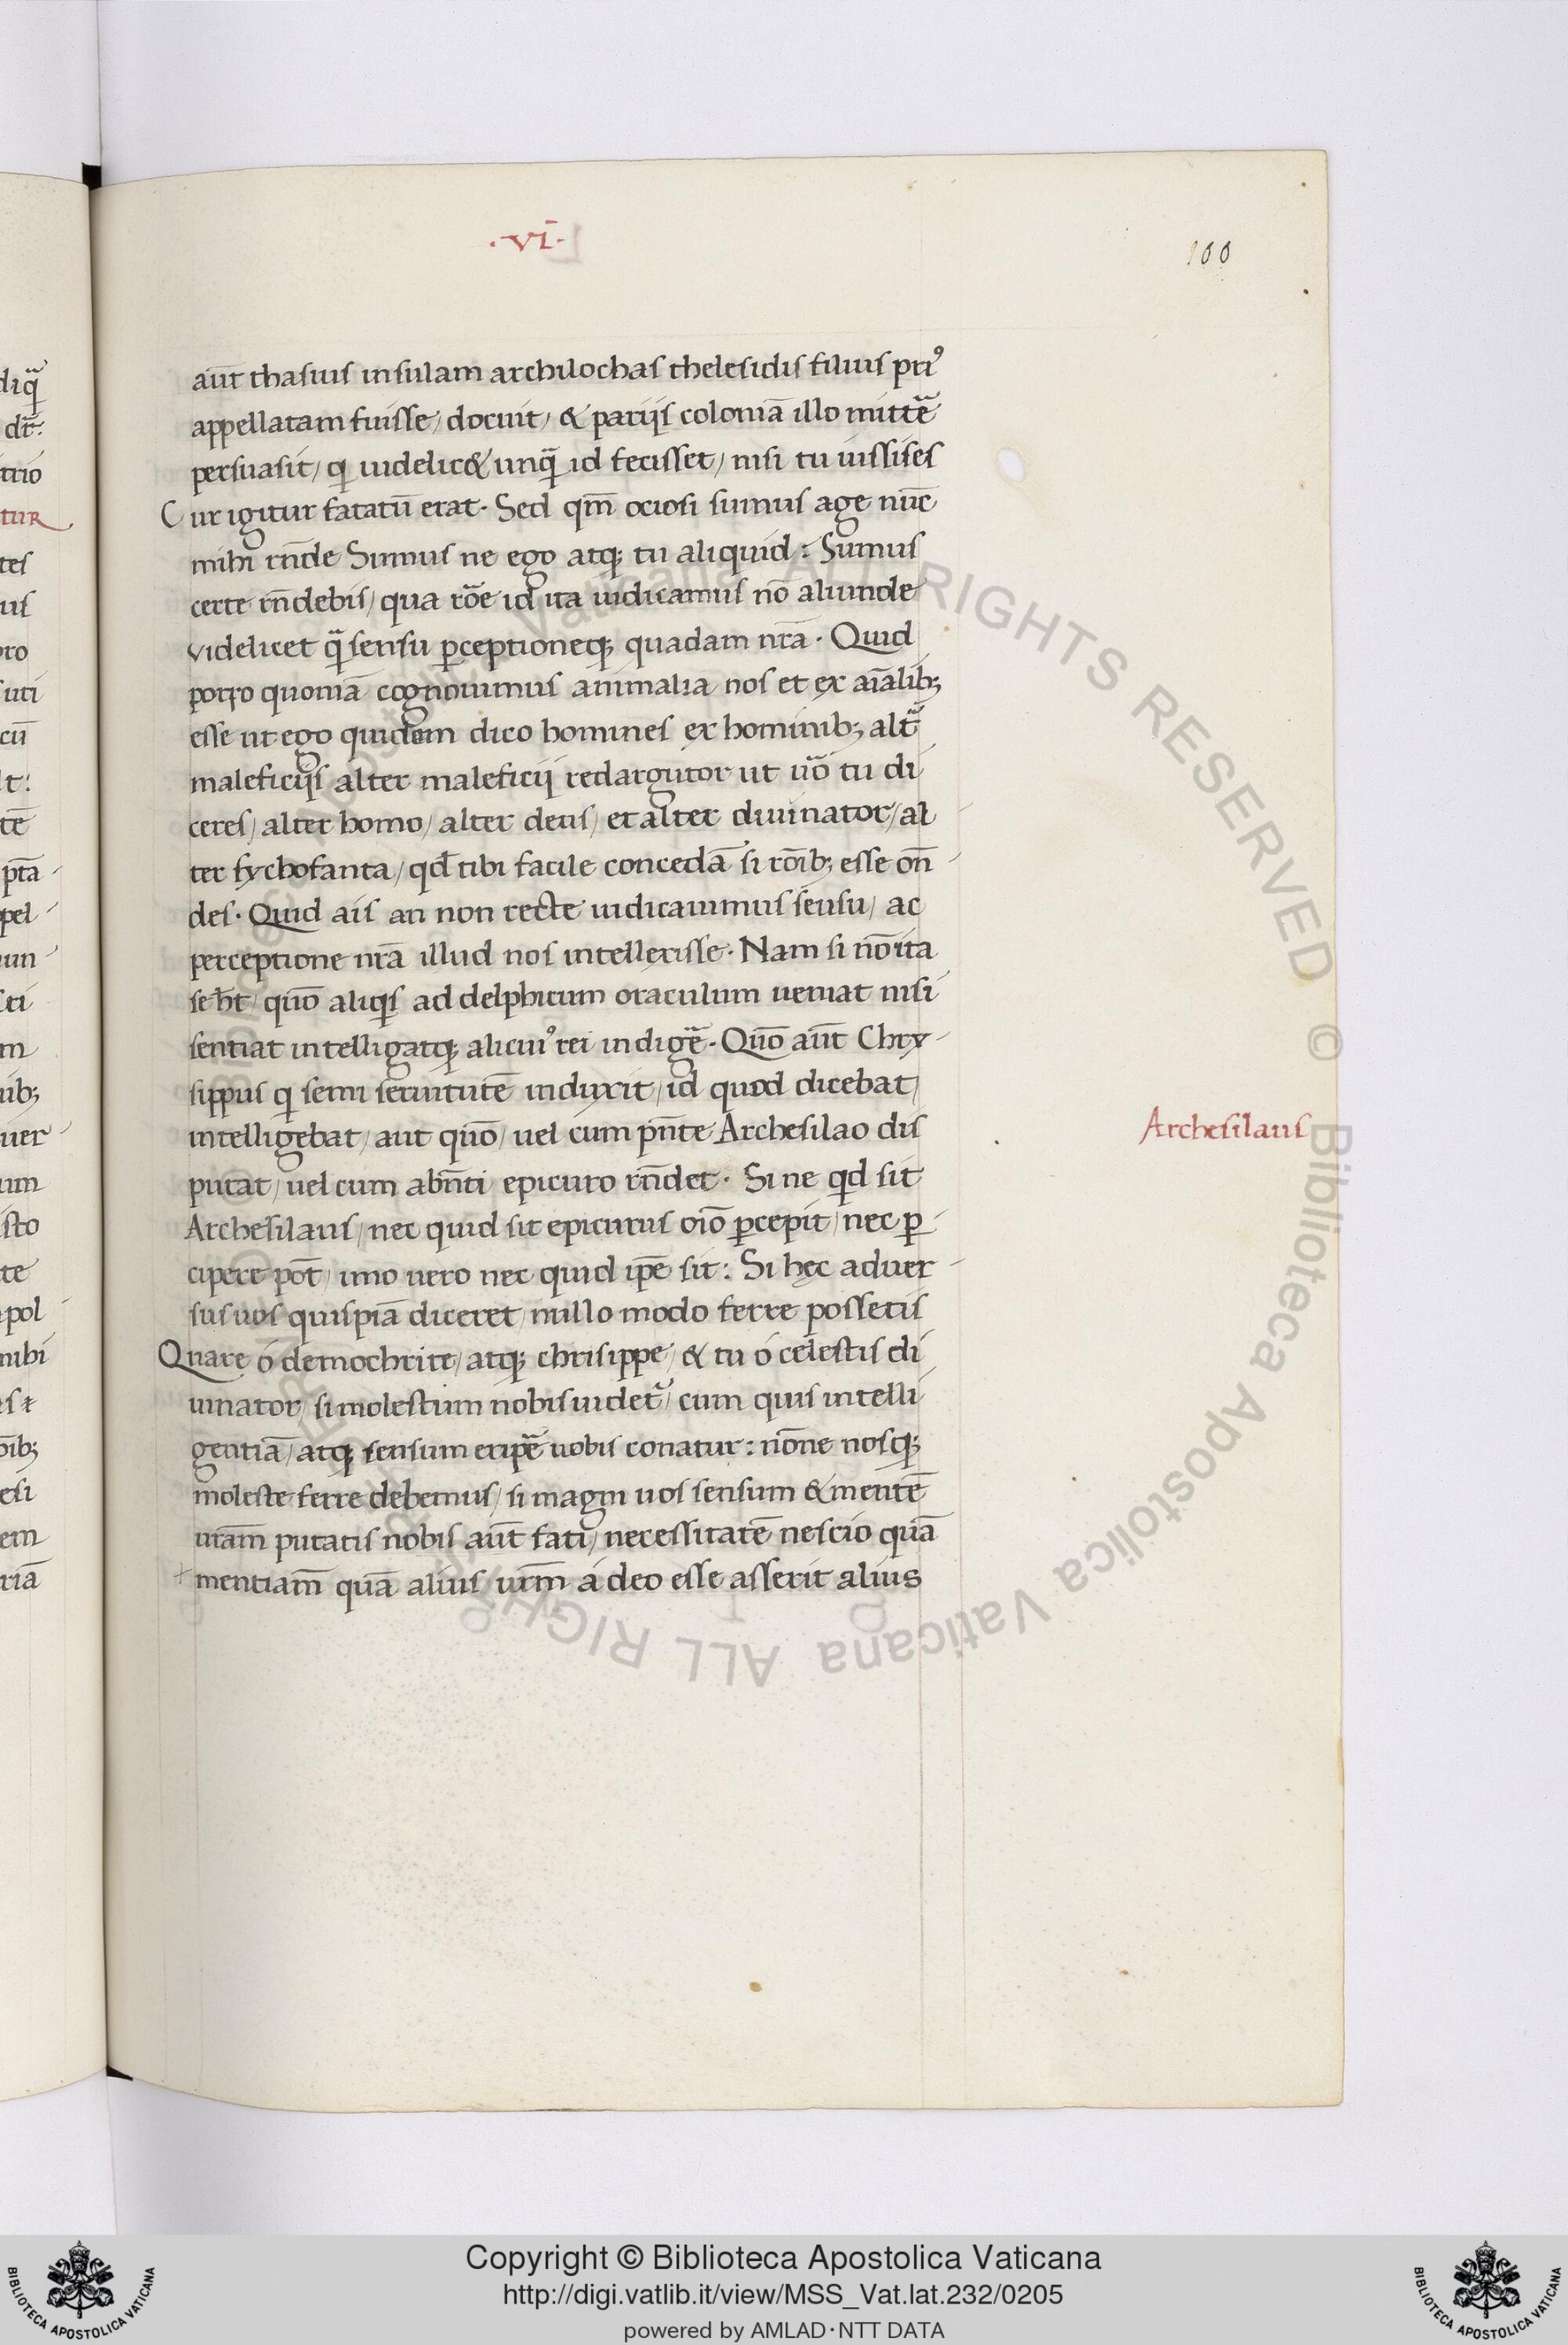 ·VI·
100
aūt thasius insulam archilochas thelesidis filius pri⁹
appellatam fuisse / docuit / & parijs coloniā illo mittē
persuasit / qi uidelic& unq̄ id fecisset / nisi tu iussises
Cur igitur fatatū erat · Sed qm̄ ociosi sumus age nūc
mihi rn̄de Sumus ne ego atq; tu aliquid : Sumus
certe rn̄debis / qua rōe id ita iudicamus nō aliunde
videlicet q̄ sensu ꝑceptioneq; quadam nrā · Quid
porro quoniā cognouimus animalia nos et ex aīalib;
esse ut ego quidem dico homines ex hominib; alt̄
maleficijs alter maleficij redargutor ut uō tu di
ceres / alter homo / alter deus / et alter diuinator / al
ter sychofanta / qd̄ tibi facile concedā si rōib; esse on̄
des · Quid ais an non recte iudicauimus sensu / ac
perceptione nrā illud nos intellexisse · Nam si nō ita
se h̄t / quō aliqis ad delphicum oraculum ueniat nisi
sentiat intelligatq; alicui⁹ rei indigē · Quō aūt Chry
sippus qi semi seruitutē induxit / id quod dicebat /
intelligebat / aut quō / uel cum pn̄te Archesilao dis
putat / uel cum abn̄ti epicuro rn̄det · Si ne qid sit
Archesilaus / nec quid sit epicurus oīo ꝑcepit / nec ꝑ
cipere pōt / imo uero nec quid ip̄e sit : Si hęc aduer
sus uos quispiā diceret / nullo modo ferre possetis
Quare ó demochrite / atq; chrisippe / & tu ó celestis di
uinator / si molestum nobis uidet̄ / cum quis intelli
gentiā / atq; sensum eripē uobis conatur : nōne nosq;
moleste ferre debemus / si magni uos sensum & mentē
uram̄ putatis nobis aūt fati / necessitatē nescio quā
mentiam̄ quā alius urm̄ á deo esse asserit alius
Archesilaus
Copyright © Biblioteca Apostolica Vaticana
http://digi.vatlib.it/view/MSS_Vat.lat.232/0205
powered by AMLAD·NTT DATA